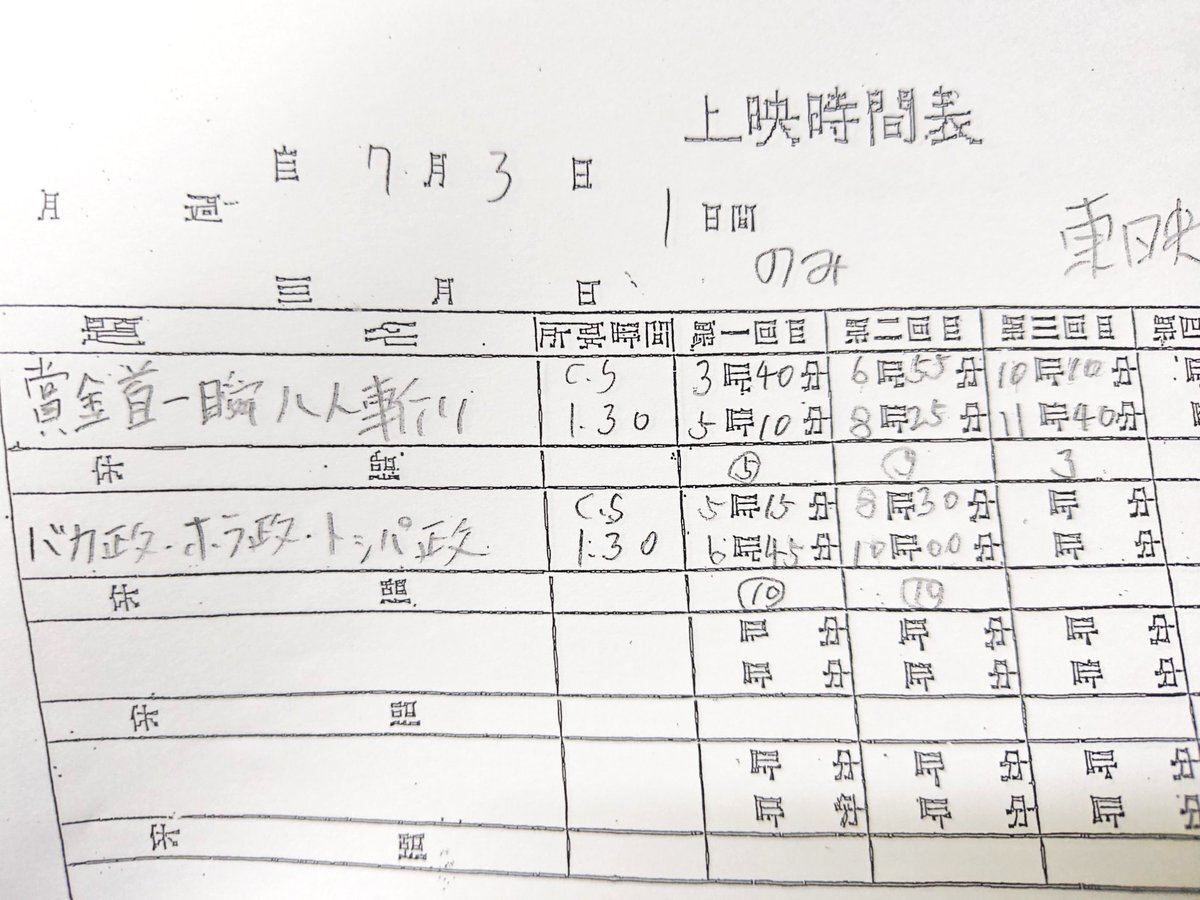 上映時間表
自 7月3日
月 週
1日間
のみ
東映
至 月 日
題名 所要時間 第一回目 第二回目 第三回目 第四
賞金首一瞬八人斬り C.S 3時40分 6時55分 10時10分 時
1.30 5時10分 8時25分 11時40分 時
休憩 5 5 3
バカ政・ホラ政・トッパ政 C.S 5時15分 8時30分 時 分
1.30 6時45分 10時00分 時 分
休憩 10 10
時 分 時 分 時 分
時 分 時 分 時 分
休憩
時 分 時 分 時 分
時 分 時 分 時 分
休憩